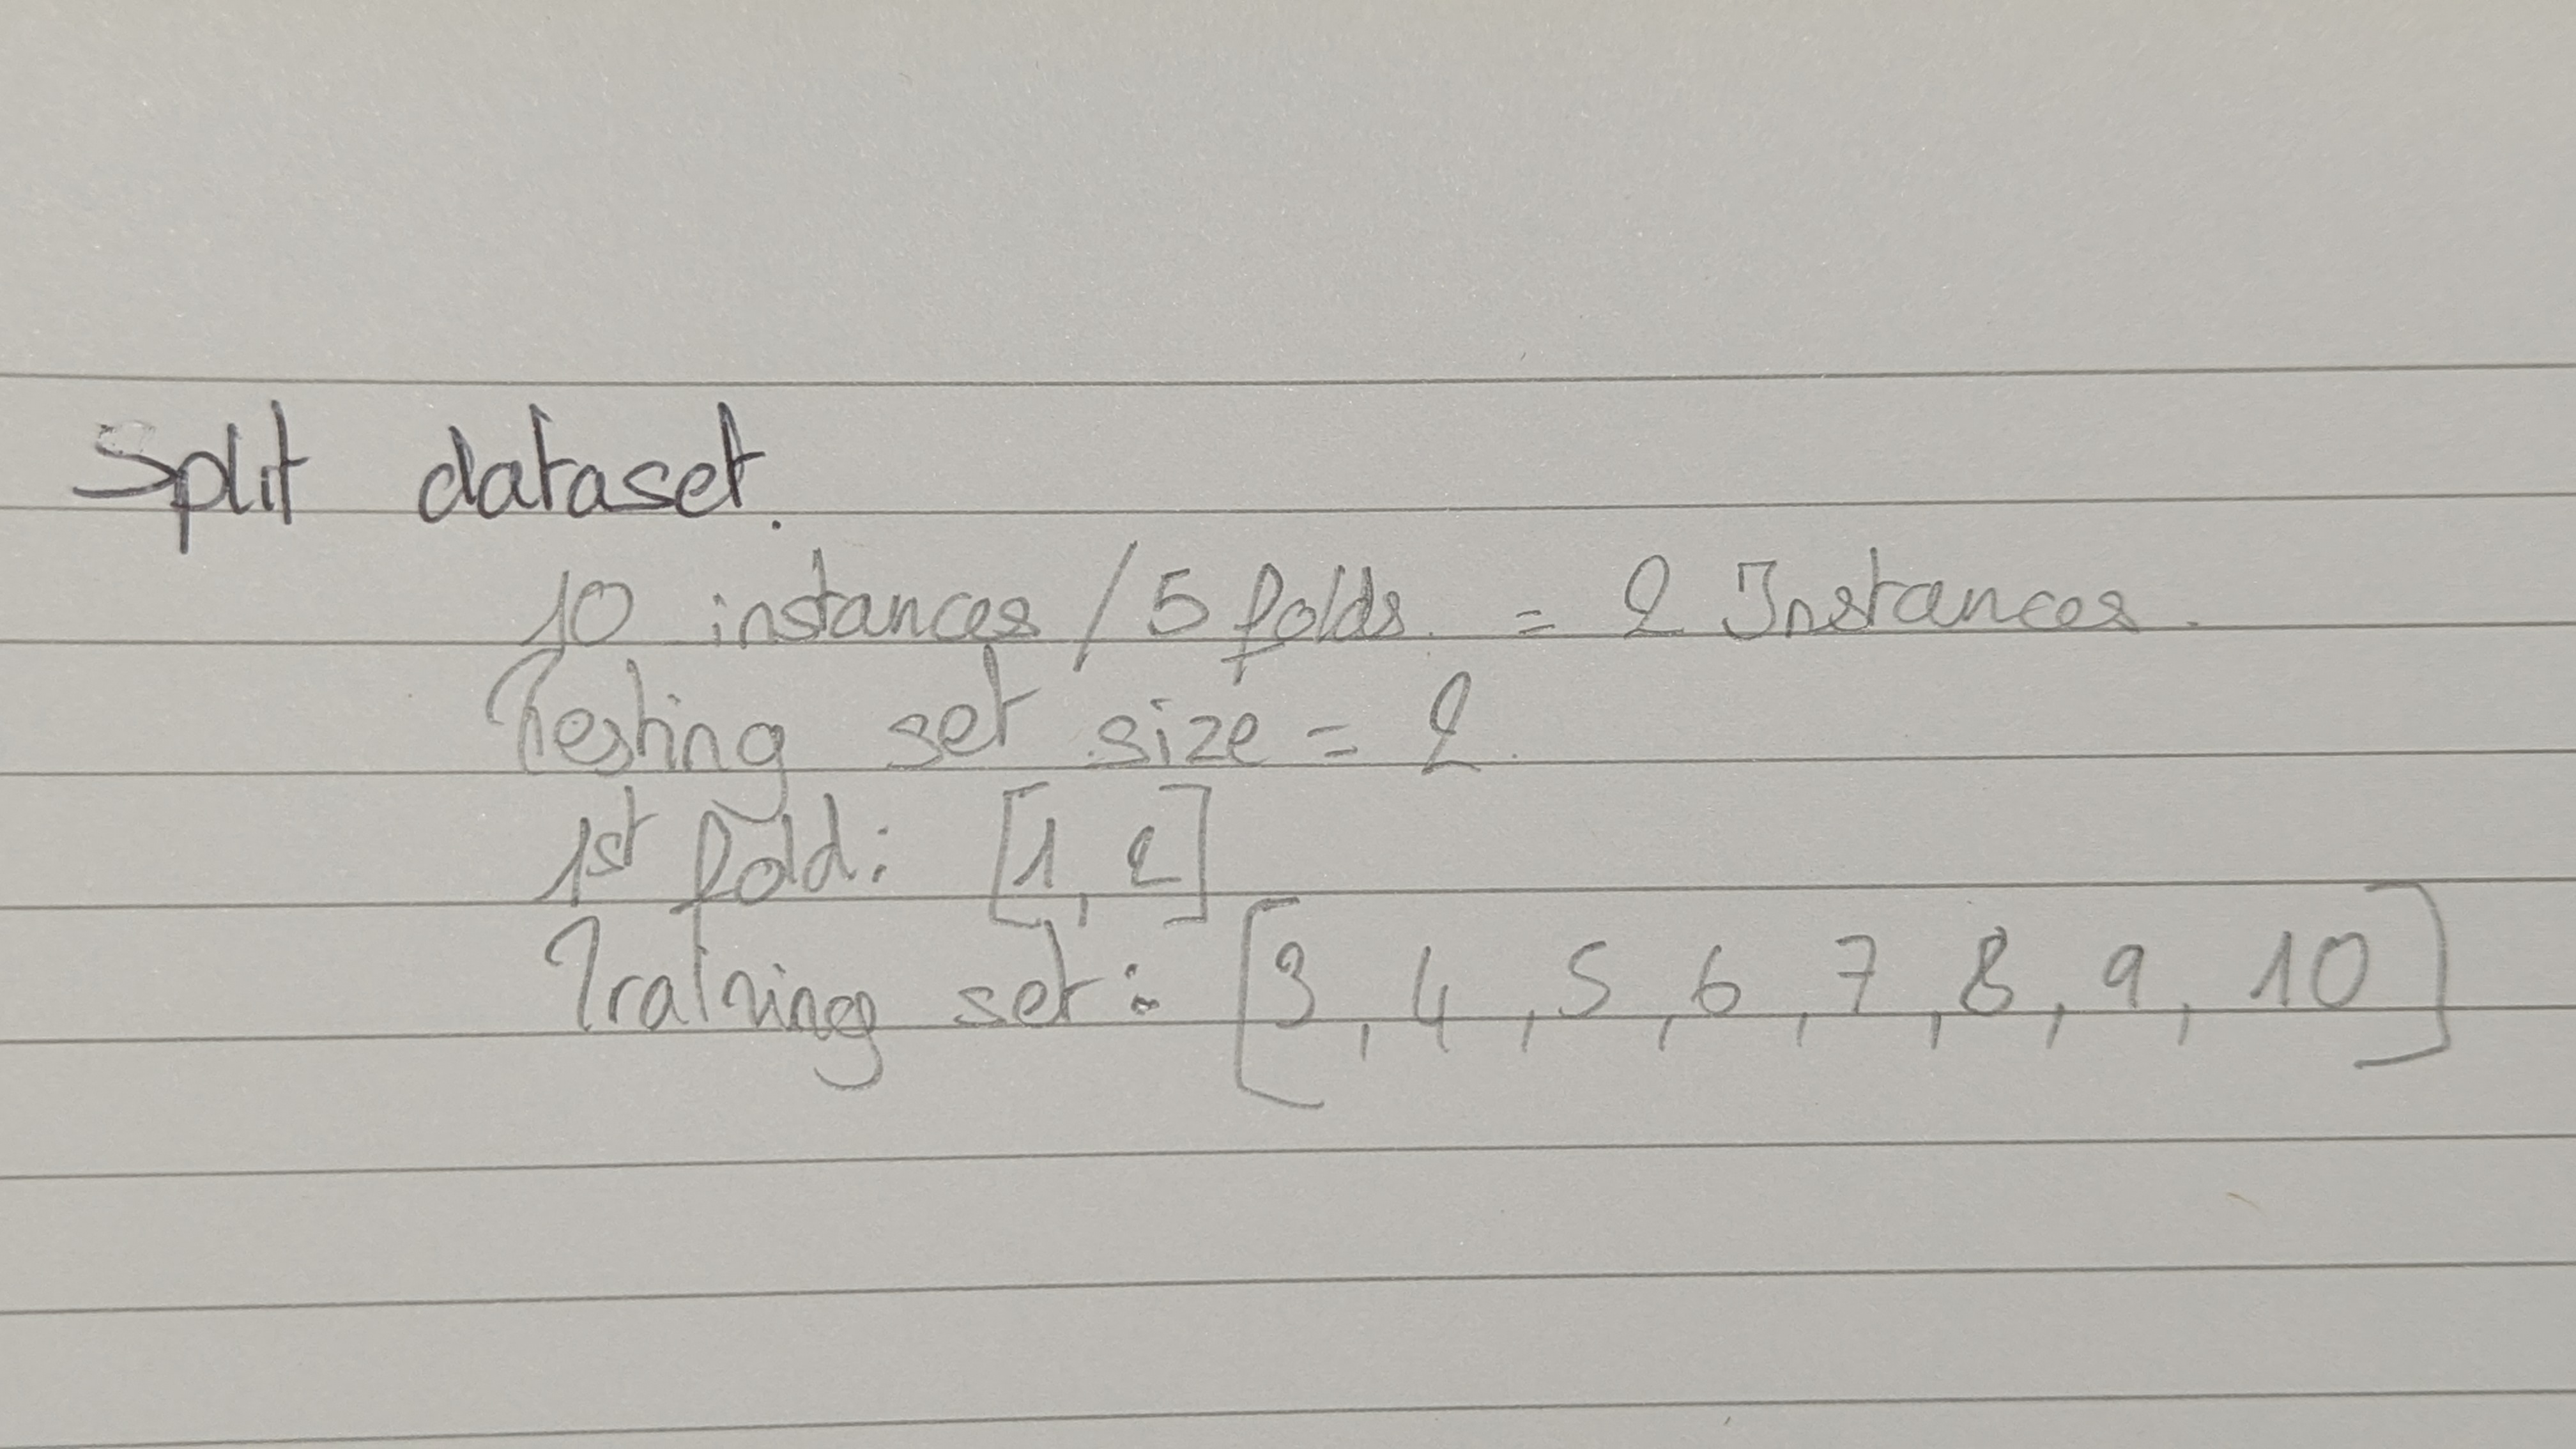 Split dataset.
10 instances / 5 folds. = 2 Instances.
Testing set size = 2.
1st fold: [1, 2]
Training set: [3, 4, 5, 6, 7, 8, 9, 10]